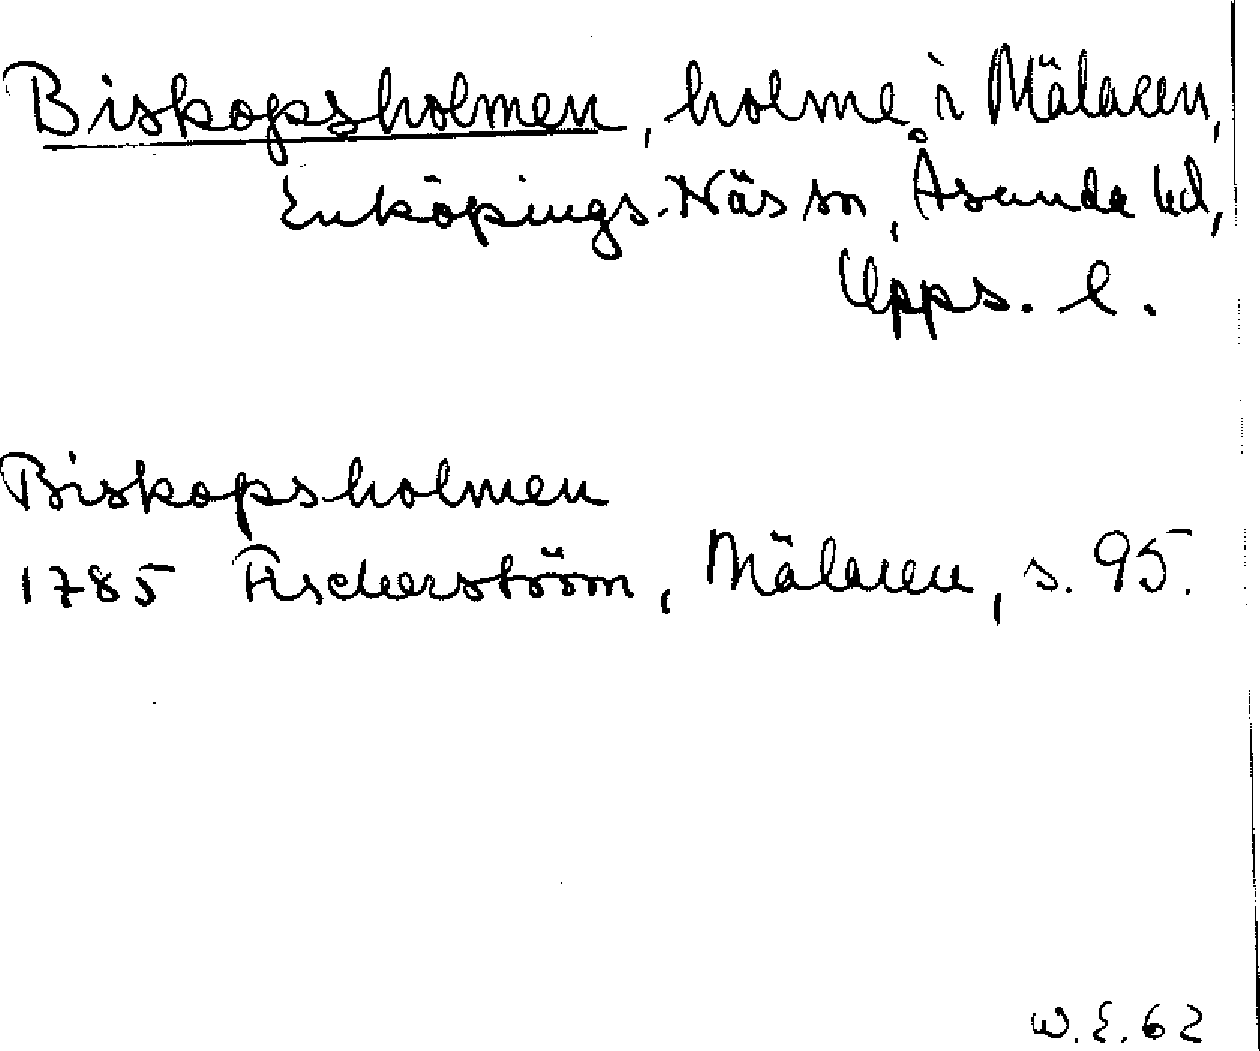 Biskopsholmen, holme i Mälaren,
Enköpings-Näs sn, Åsunda hd,
Upps. l.
Biskopsholmen
1785 Fischerström, Mälaren, s. 95.
W.E. 62